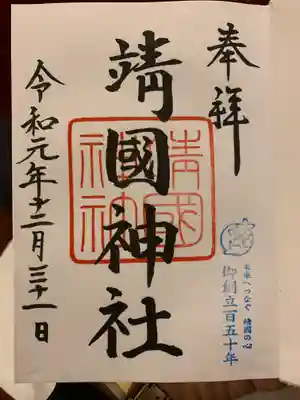 奉拝
靖國神社
靖國
神社
未来へつなぐ 靖國の心
御創立百五十年
令和元年十二月三十一日